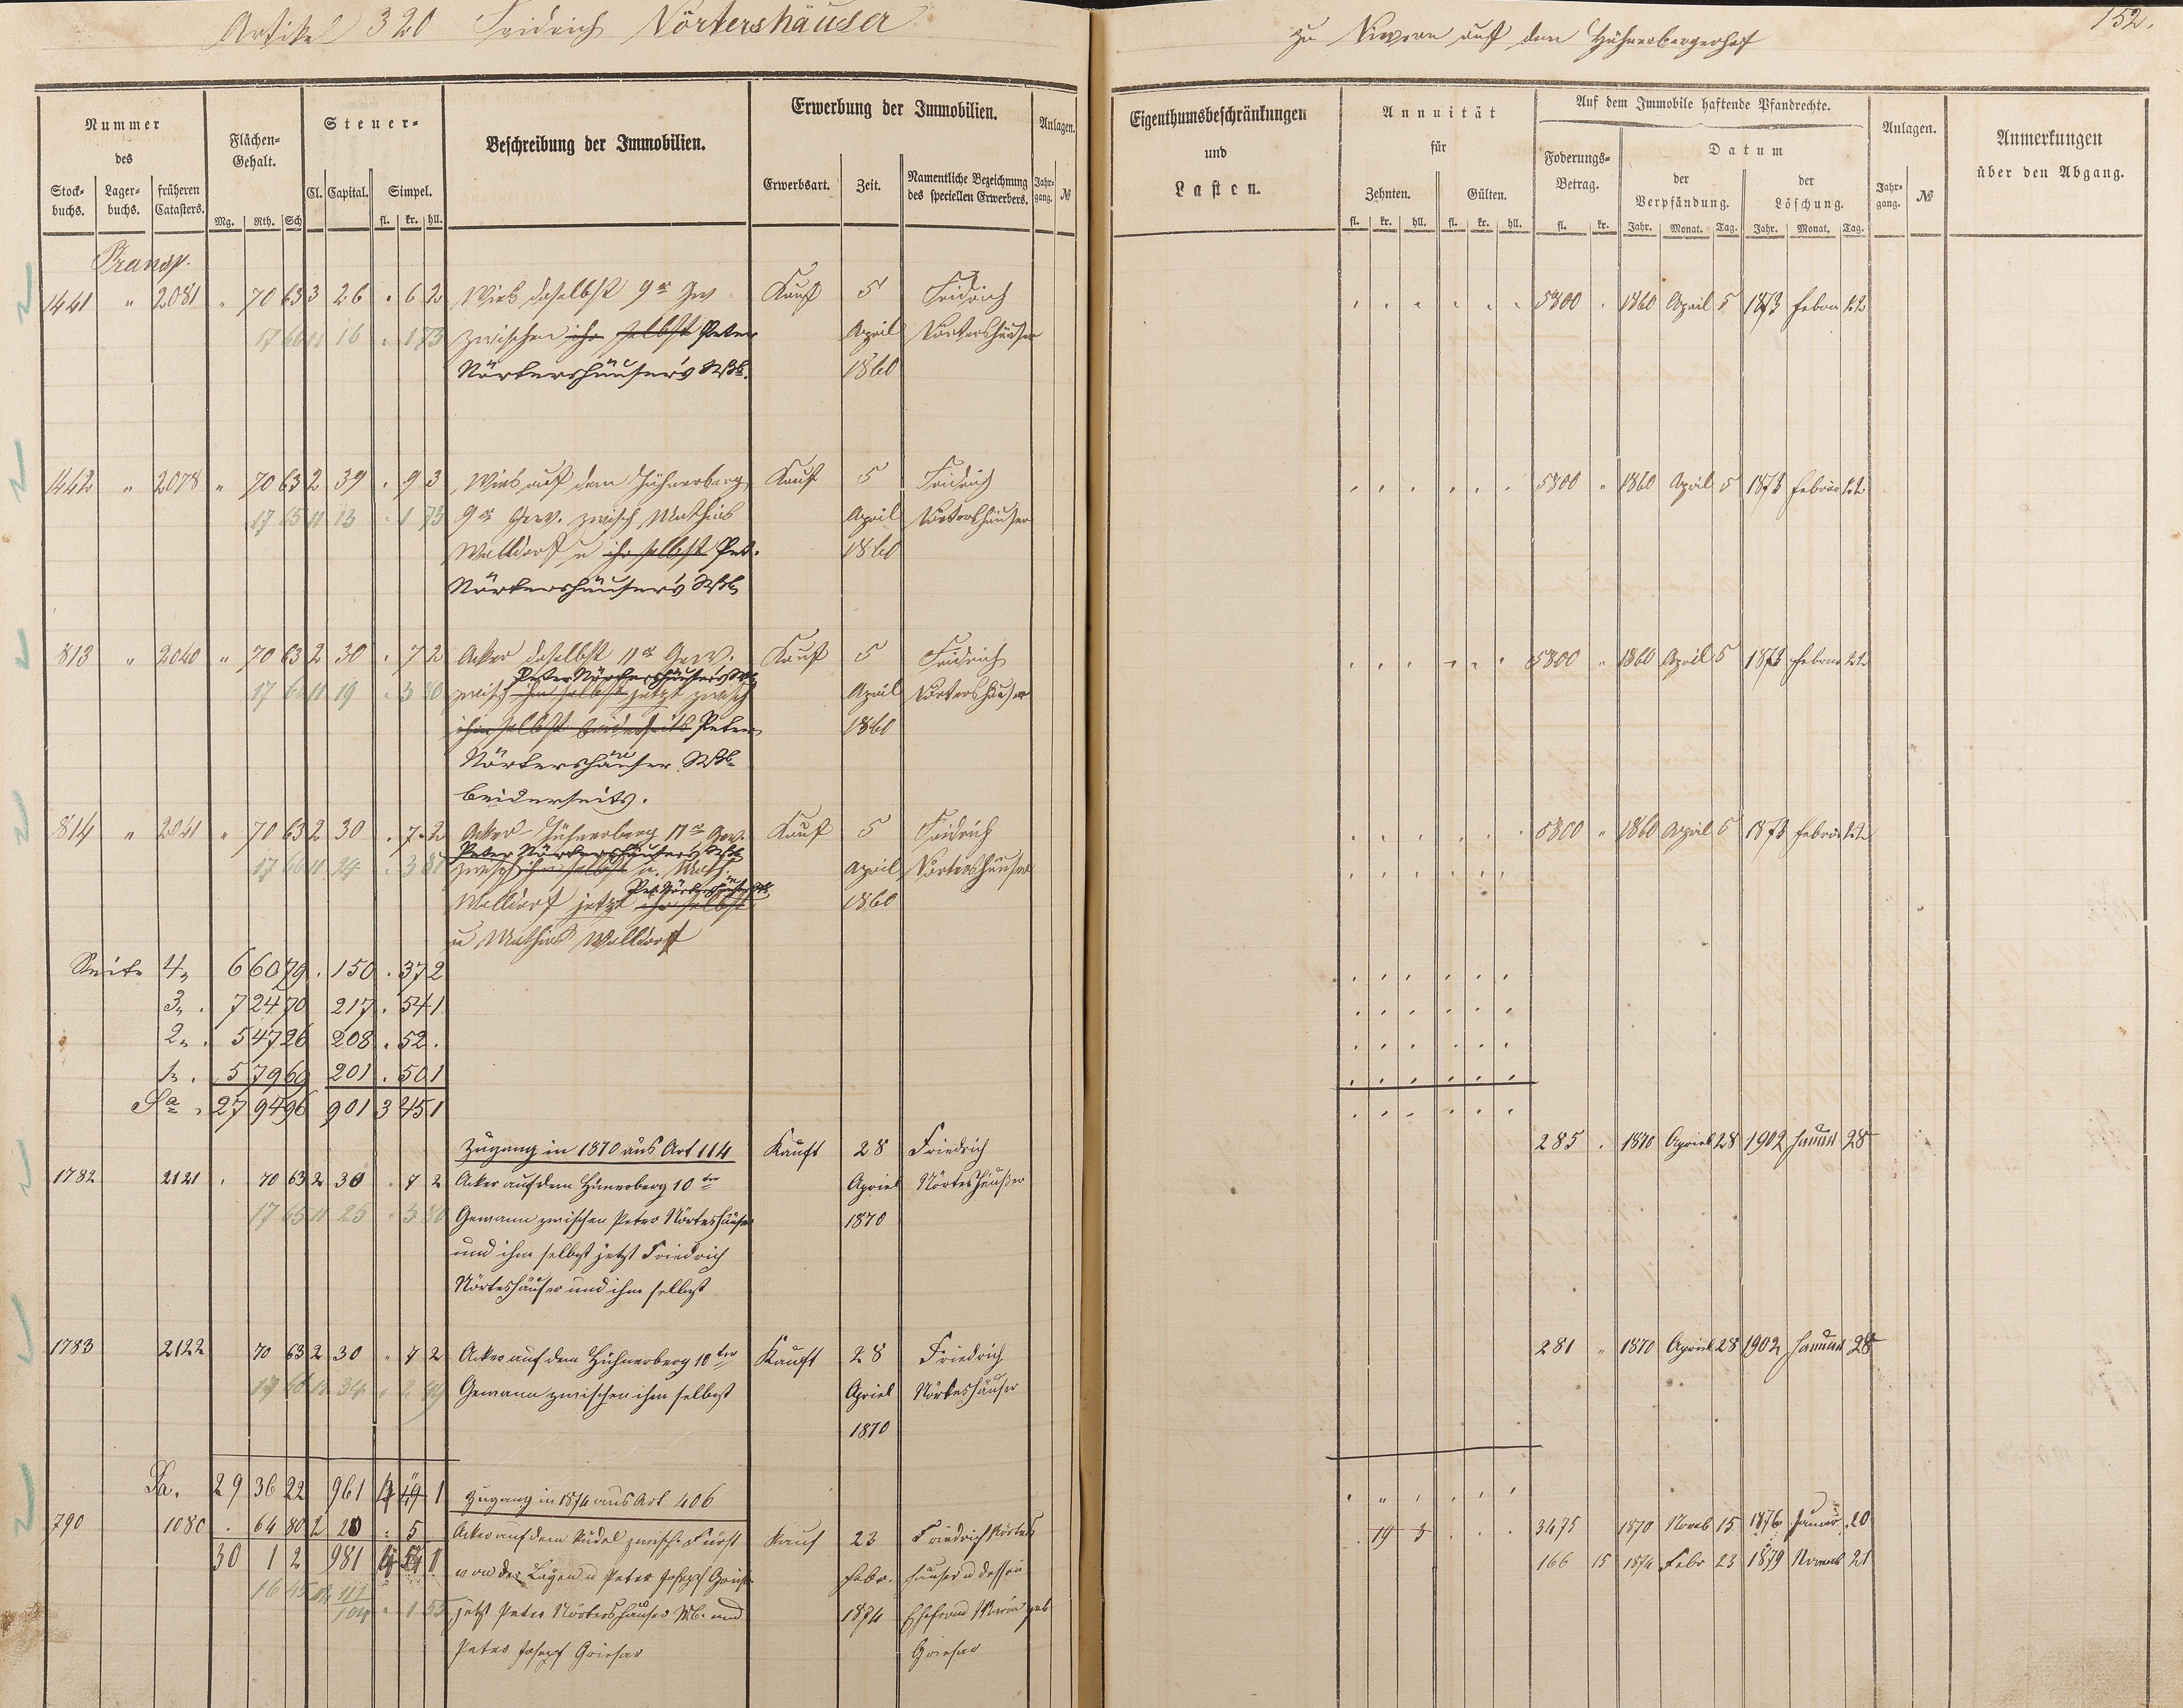 Artikel 320 Fridrich Nörtershäuser
zu Nievern auf dem Hühnerbergerhof
152.
Nummer des
Stockbuchs. Lagerbuchs. früheren Catasters.
Flächen-Gehalt.
Mg. Rth. Sch
Steuer-
Cl. Capital. Simpel.
fl. kr. hll.
Beschreibung der Immobilien.
Erwerbung der Immobilien.
Erwerbsart. Zeit. Namentliche Bezeichnung des speciellen Erwerbers.
Anlagen.
Jahrgang. №
Eigenthumsbeschränkungen und Lasten.
Annuität für
Zehnten. Gülten.
fl. kr. hll. fl. kr. hll.
Auf dem Immobile haftende Pfandrechte.
Foderungs-Betrag.
fl. kr.
Datum
der Verpfändung. der Löschung.
Jahr. Monat. Tag. Jahr. Monat. Tag.
Anlagen.
Jahrgang. №
Anmerkungen über den Abgang.
Transp.
1441 " 2081 " 70 63 3 26 . 6 2 Wies daselbst 9r Gew Kauf 5 Fridrich 5800 . 1860 April 5 1873 Febru 22
16 . 1 73 zwischen ihr selbst Peter April Nörtershäuser
Nörtershäuser's Wb. 1860
1442 " 2078 " 70 63 2 39 . 9 3 Wies auf dem Hühnerberg Kauf 5 Fridrich 5800 " 1860 April 5 1873 Februar 22
13 . 1 73 9r Gew. zwisch Mathias April Nörtershäuser
Walldorf u ihr selbst Pet. 1860
Nörtershäuser's Wb
813 " 2040 " 70 63 2 30 . 7 2 Acker daselbst 11r Gew. Kauf 5 Fridrich 5800 " 1860 April 5 1873 Februar 22
Peter Nörtershäuser's Wb
19 . 3 80 zwisch ihm selbst jetzt zwisch April Nörtershäuser
ihm selbst beiderseits Peter 1860
Nörtershäuser Wb
beiderseits.
814 " 2041 " 70 63 2 30 . 7 2 Acker Hühnerberg 11r Gew. Kauf 5 Fridrich 5800 " 1860 April 5 1873 Februar 22
Peter Nörtershäuser's Wb
zwisch ihm selbst u. Math. April Nörtershäuser
Walldorf jetzt ihr selbst 1860
u Mathias Walldorf
Seite 4. 6 60 79 . 150 . 37 2
3. . 7 24 70 217 . 54 1
2. . 5 47 26 208 . 52 .
1. . 5 79 60 201 . 50 1
Sa . 27 94 96 901 3 45 1
Zugang in 1870 aus Art 114 Kauft 28 Friedrich 285 . 1870 Apriel 28 1902 Januar 28
1782 2121 . 70 63 2 30 " 7 2 Acker auf dem Hünerberg 10ter Apriel Nörteshäußer
17 65 25 " 3 80 Gewann zwischen Peter Nörteshäuser 1870
und ihm selbst jetzt Friedrich
Nörteshäuser und ihm selbst
1783 2122 70 63 2 30 " 7 2 Acker auf dem Hühnerberg 10ter Kauft 28 Friedrich 281 " 1870 Apriel 28 1902 Januar 28
34 Gewann zwischen ihm selbst Apriel Nörteshäuser
1870
Sa. 29 36 22 961 49 1 Zugang in 1874 aus Art 406
790 1080 . 64 80 2 20 . 5 Acker auf dem zwisch. Fürst Kauf 23 Friedrich Nörters . 19 3 3475 1870 Noveb 15 1876 Januar 20
30 1 2 981 54 1 von der Leyen u Peter Joseph Griesar Febr. häuser u dessen 166 15 1874 Febr 23 1879 Novemb 21
16 45 jetzt Peter Nörtershäuser Wb. und 1874 Ehefrau Maria geb
Peter Joseph Griesar Griesar